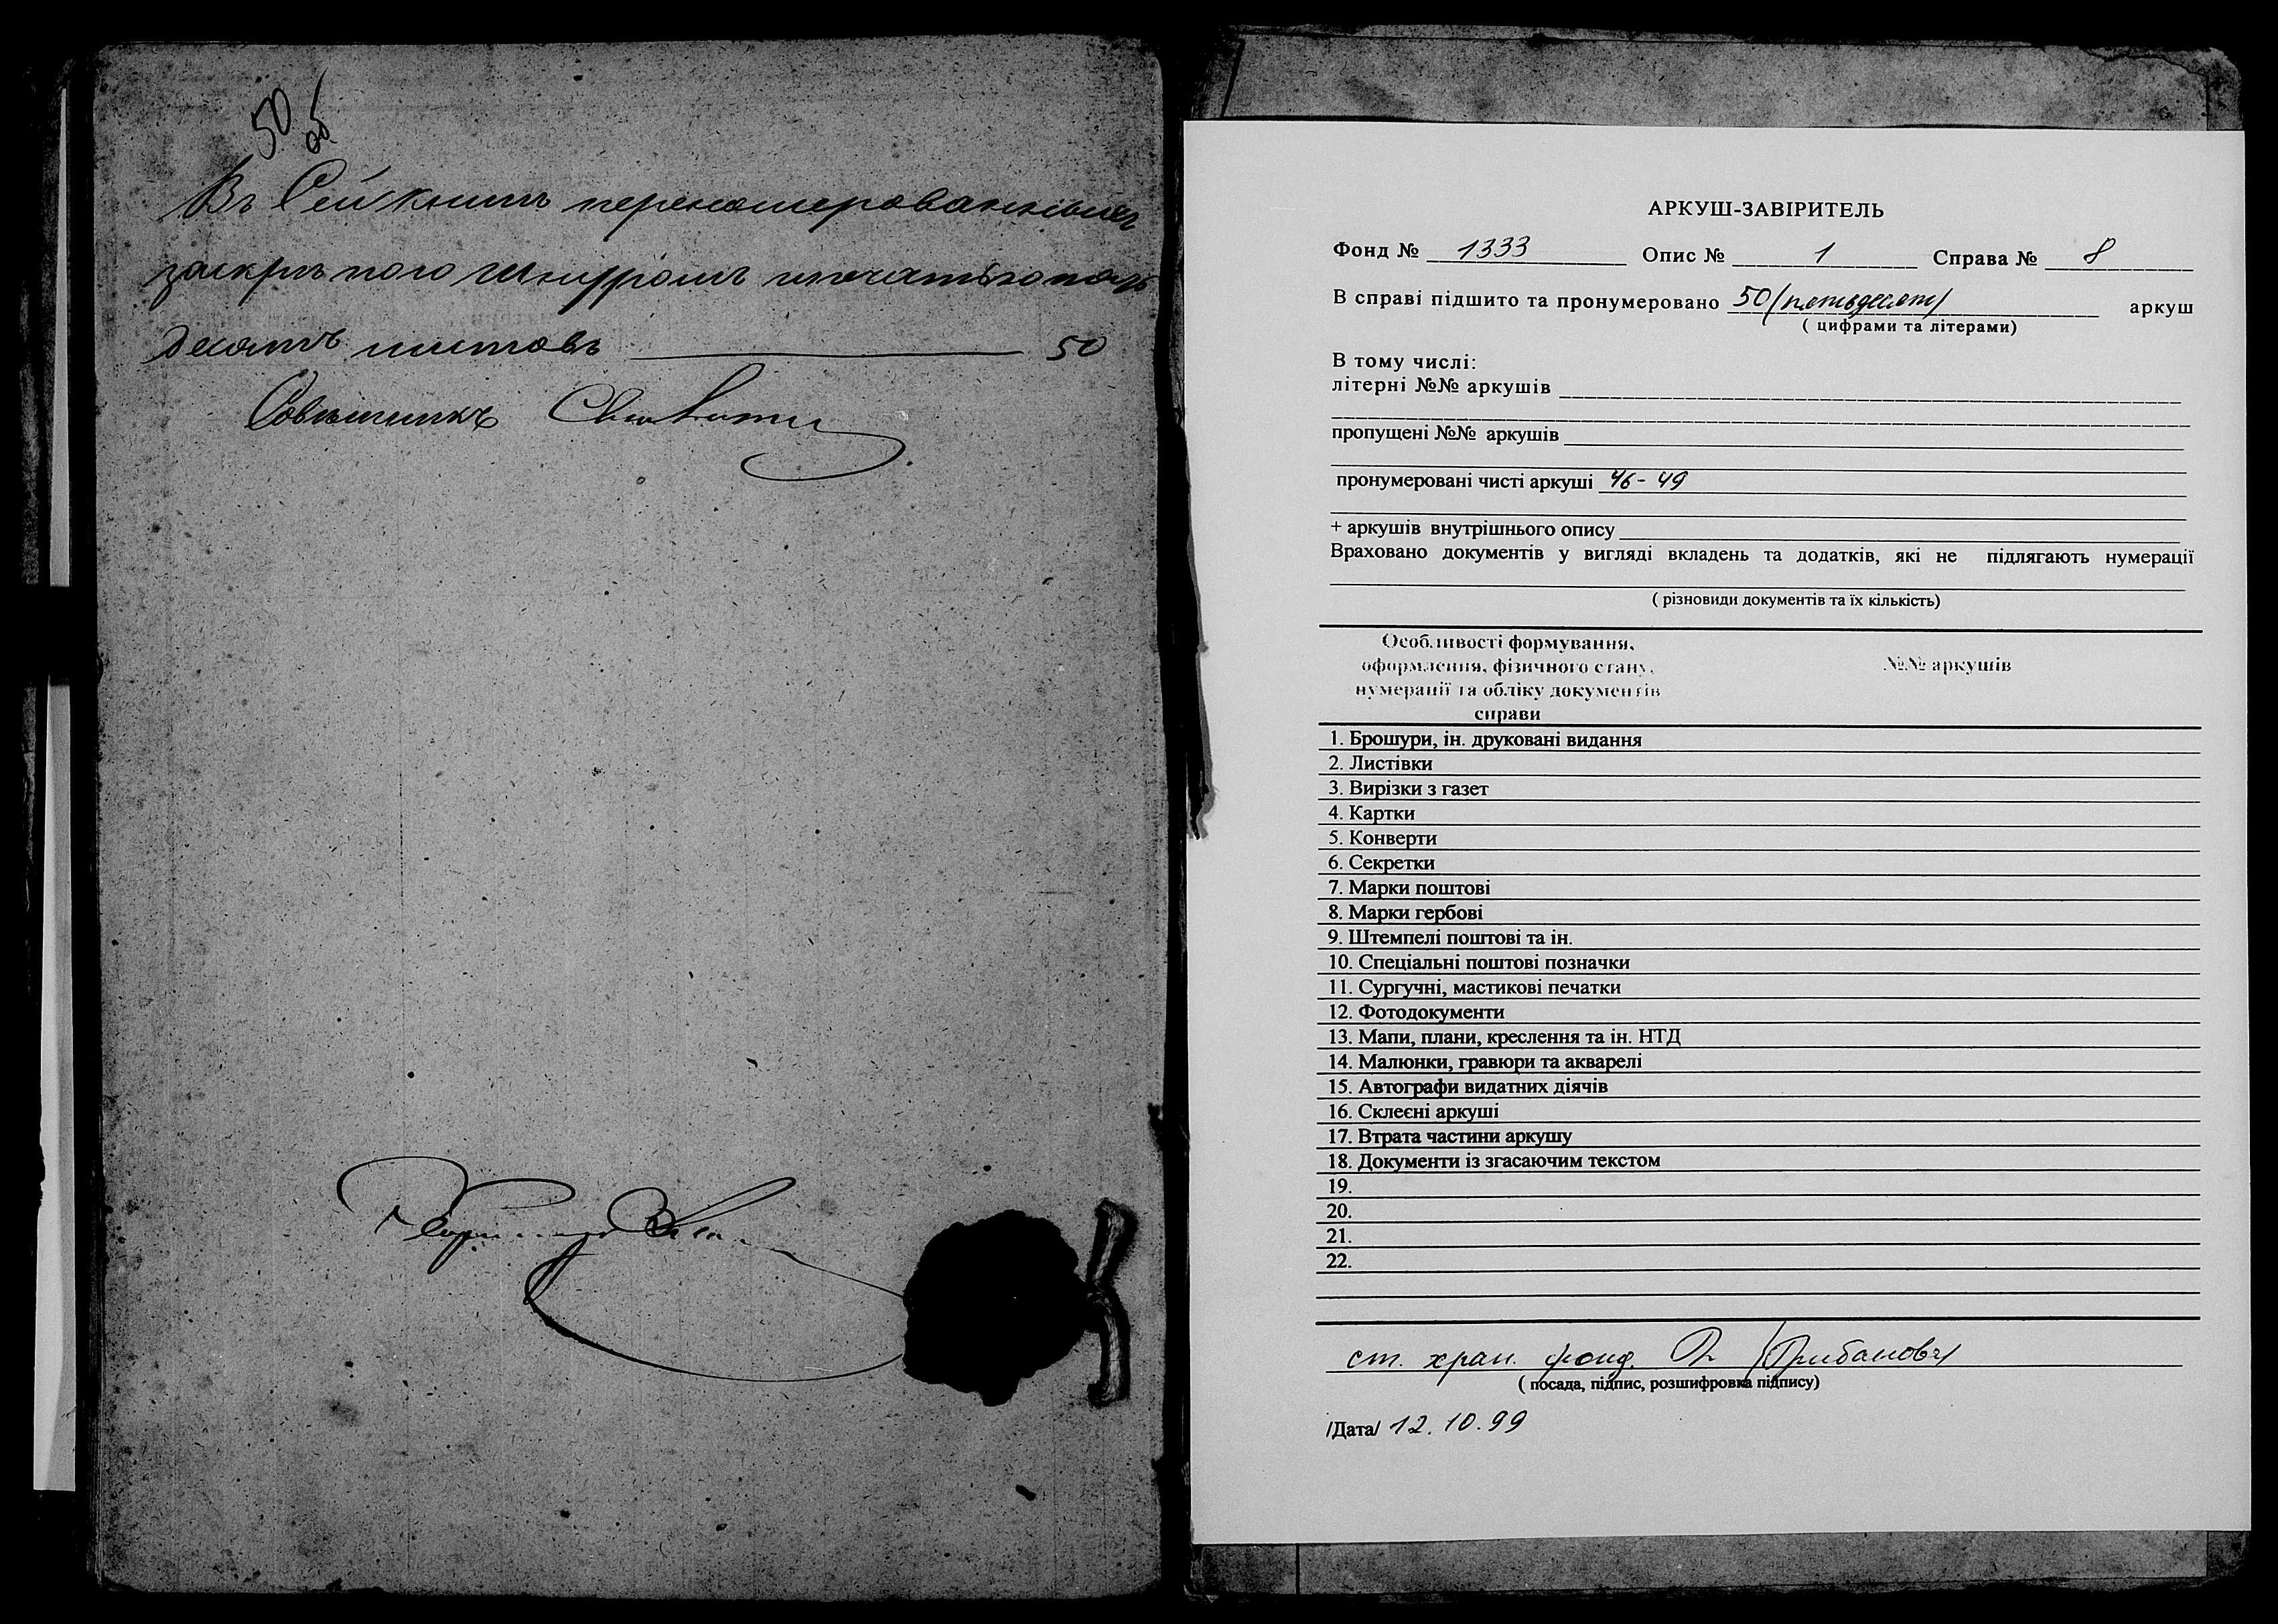 50
об
Въ Сей книгѣ перенумерованныхъ
закрѣпого шнуромъ и печатью пять
десятъ листовъ 50
Совѣтникъ
АРКУШ-ЗАВІРИТЕЛЬ
Фонд № 1333 Опис № 1 Справа № 8
В справі підшито та пронумеровано 50 (пятьдесят) аркуш
( цифрами та літерами)
В тому числі:
літерні №№ аркушів
пропущені №№ аркушів
пронумеровані чисті аркуші 46-49
+ аркушів внутрішнього опису
Враховано документів у вигляді вкладень та додатків, які не підлягають нумерації
( різновиди документів та їх кількість)
Особливості формування,
оформлення, фізичного стану,
нумерації та обліку документів
справи
№№ аркушів
1. Брошури, ін. друковані видання
2. Листівки
3. Вирізки з газет
4. Картки
5. Конверти
6. Секретки
7. Марки поштові
8. Марки гербові
9. Штемпелі поштові та ін.
10. Спеціальні поштові позначки
11. Сургучні, мастикові печатки
12. Фотодокументи
13. Мапи, плани, креслення та ін. НТД
14. Малюнки, гравюри та акварелі
15. Автографи видатних діячів
16. Склеєні аркуші
17. Втрата частини аркушу
18. Документи із згасаючим текстом
19.
20.
21.
22.
ст. хран. фонд.
( посада, підпис, розшифровка підпису)
/Дата/ 12.10.99